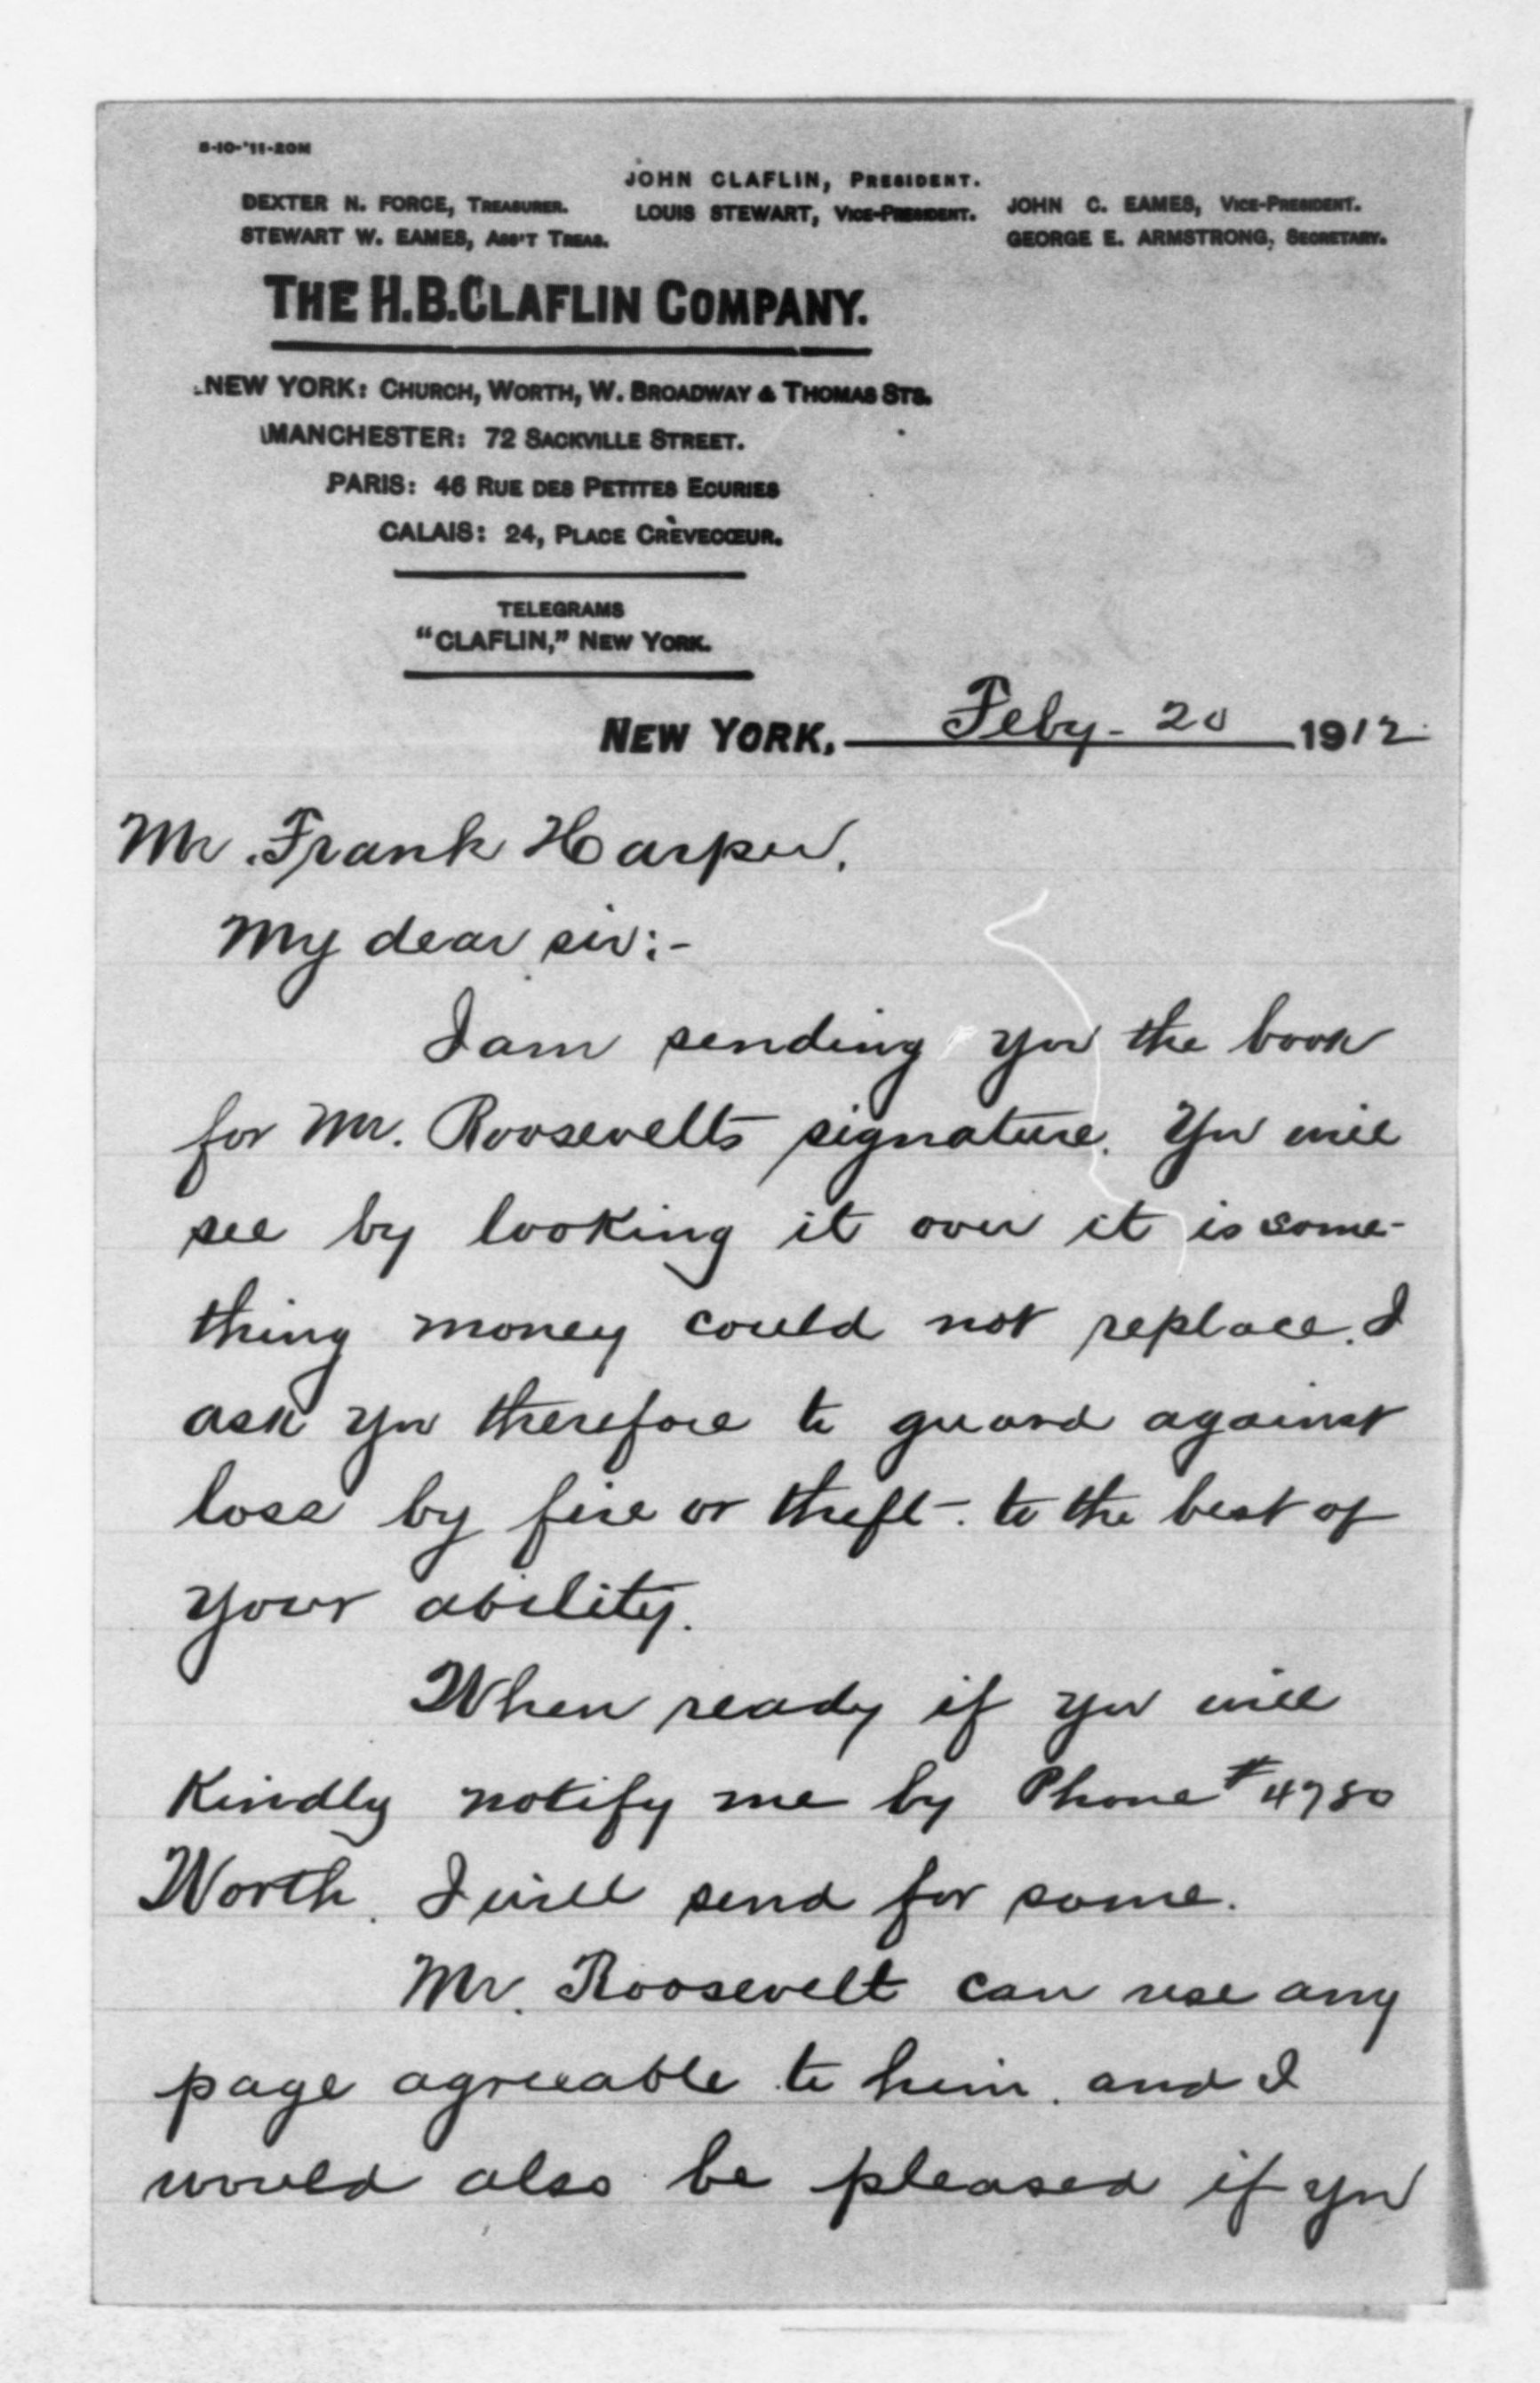 8-10-'11-20M
JOHN CLAFLIN, PRESIDENT.
DEXTER N. FORCE, TREASURER. LOUIS STEWART, VICE-PRESIDENT. JOHN C. EAMES, VICE-PRESIDENT.
STEWART W. EAMES, ASS'T TREAS. GEORGE E. ARMSTRONG, SECRETARY.
THE H.B. CLAFLIN COMPANY.
NEW YORK: CHURCH, WORTH, W. BROADWAY & THOMAS STS.
MANCHESTER: 72 SACKVILLE STREET.
PARIS: 46 RUE DES PETITES ECURIES
CALAIS: 24, PLACE CRÈVECŒUR.
TELEGRAMS
"CLAFLIN," NEW YORK.
NEW YORK, Feby - 20 1912
Mr. Frank Harper.
My dear sir:-
I am sending you the book
for Mr. Roosevelts signature. You will
see by looking it over it is some-
thing money could not replace. I
ask you therefore to guard against
loss by fire or theft - to the best of
your ability.
When ready if you will
Kindly notify me by Phone #4780
Worth. I will send for same.
Mr. Roosevelt can use any
page agreeable to him. and I
would also be pleased if you